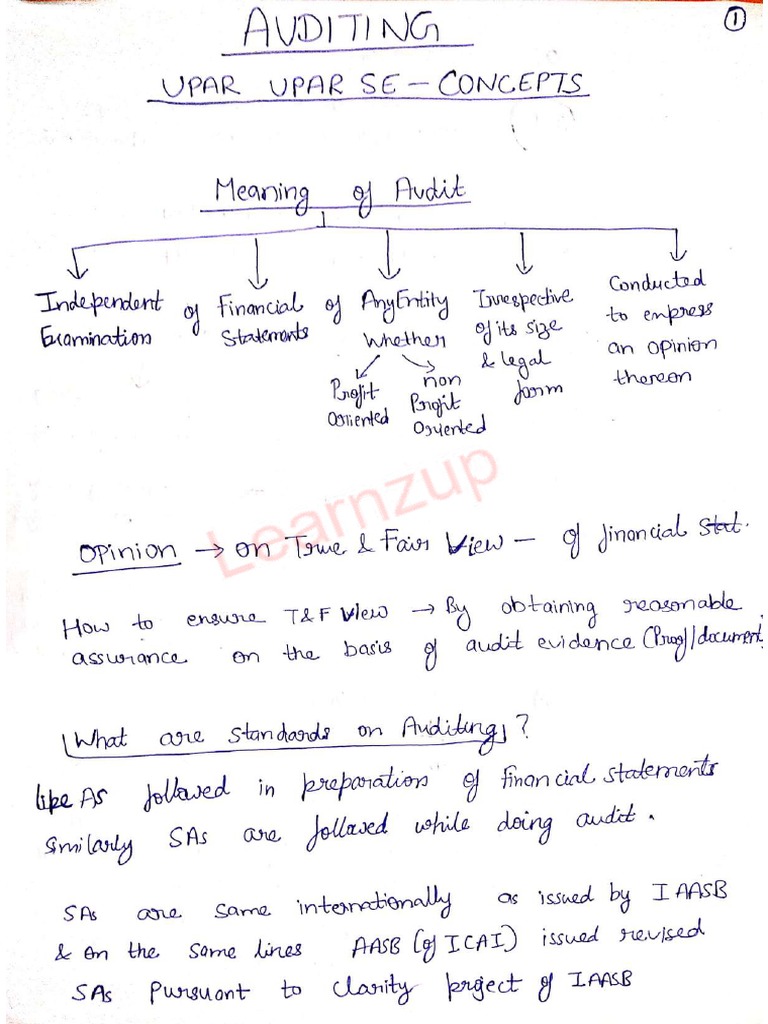 1
AUDITING
UPAR UPAR SE - CONCEPTS
Meaning of Audit
Independent Examination
of
Financial Statements
of
Any Entity Whether
Profit Oriented
non Profit Oriented
Irrespective of its size & legal form
Conducted to express an opinion thereon
Learnzup
Opinion → on True & Fair View - of financial Stat.
How to ensure T&F View → By obtaining reasonable
assurance on the basis of audit evidence (Proof/document)
What are standards on Auditing?
like AS followed in preparation of financial statements
Similarly SAs are followed while doing audit.
SAs are same internationally as issued by IAASB
& on the same lines AASB (of ICAI) issued revised
SAs Pursuant to clarity project of IAASB